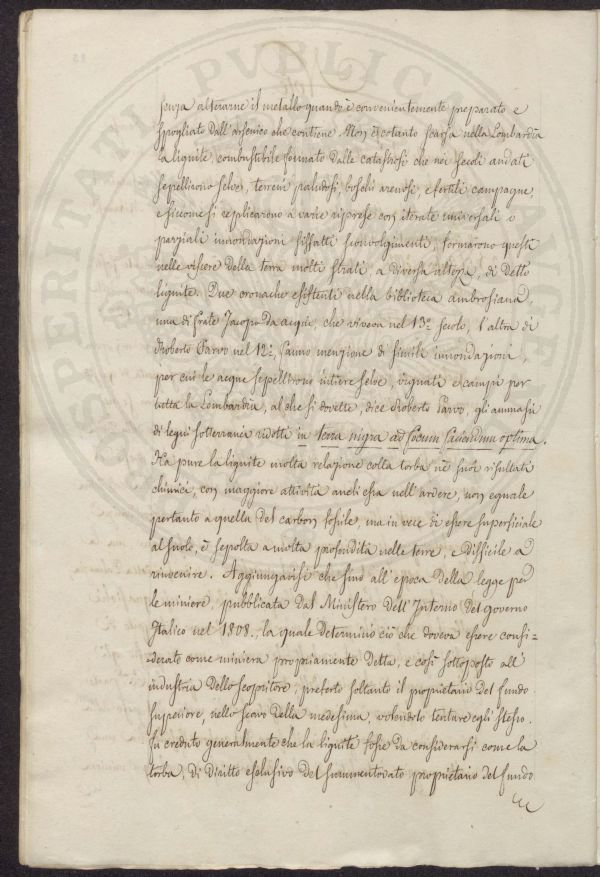 senza alterarne il metallo quando è convenientemente preparato e
spogliato dall'arsenico che contiene. Non è cotanto scarsa nella Lombardia
la lignite, combustibile formato dalle catastrofi che nei secoli andati
sepellirono selve, terreni paludosi, boschi arenosi, e fertili campagne,
e siccome si replicarono a varie riprese con iterate universali o
parziali innondazioni siffatti sconvolgimenti, formarono questi
nelle viscere della terra molti strati, a diversa altezza, di detto
lignite. Due cronache esistenti nella biblioteca ambrosiana,
una di frate Jacopo da acqui, che viveva nel 13.º secolo, l'altra di
Roberto Parvo nel 12.º, fanno menzione di simili innondazioni,
per cui le acque sepellirono intiere selve, vignati e campi per
tutta la Lombardia, al che si dovette, dice Roberto Parvo, gli ammassi
di legni sotterranei ridotti in terra nigra ad focum faciendum optima.
Ha pure la lignite molta relazione colla torba ne' suoi risultati
chimici, con maggiore attività anch'essa nell'ardere, non eguale
pertanto a quella del carbon fossile, ma in vece di essere superficiale
al suolo, è sepolta a molta profondità nelle terre, e difficile a
rinvenire. Aggiungavisi che fino all'epoca della legge per
le miniere, pubblicata dal Ministero dell'Interno del governo
Italico nel 1808., la quale determinò ciò che doveva essere consi=
=derato come miniera propriamente detta, e così sottoposto all'
industria dello scopritore, preferto soltanto il proprietario del fondo
superiore, nello scavo della medesima, volendolo tentare egli stesso.
Fu creduto generalmente che la lignite fosse da considerarsi come la
torba, di diritto esclusivo del summentovato proprietario del fondo